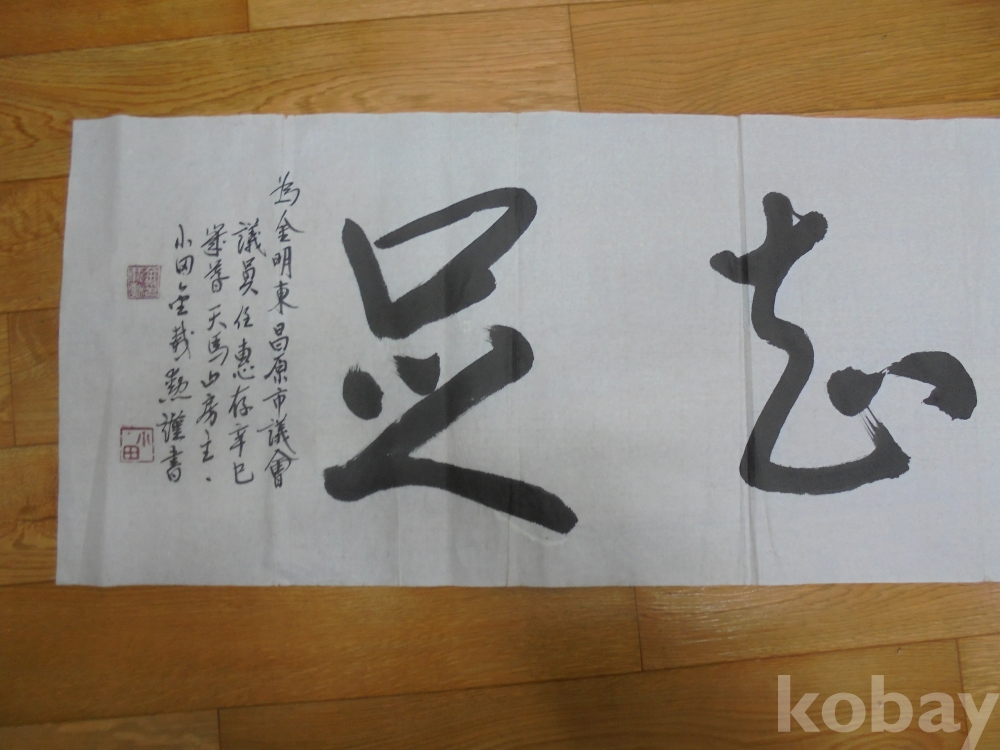 志足
為金明東昌原市議會
議員任惠存辛巳
歲暮天馬山房主
小田金載勲謹書
小田
kobay